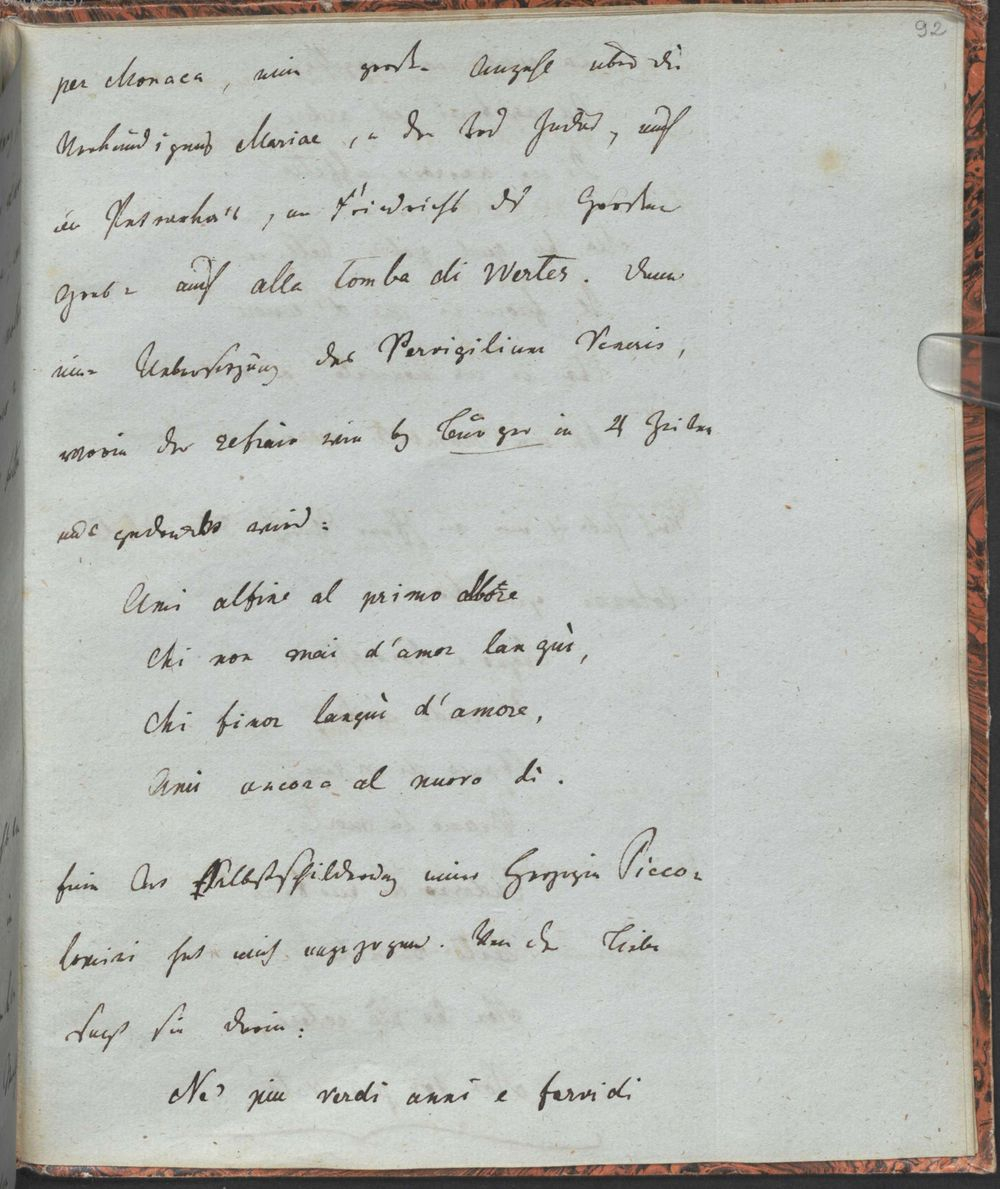 92
per Monaca, eine große Anzahl über die
Verkündigung Mariae, u den Tod Judas, auf
Petrarka's, an Friedrichs des Großen
Grab u auf alla tomba di Werter. Dann
eine Uebersetzung des Pervigilium Veneris,
worin der refrain wie bey Bürger in 4 Zeilen
ausgedrückt wird:
Ami alfine al primo albore
Chi non mai d'amor languì,
Chi finor languì d'amore,
Ami ancora al nuovo dì.
Eine Art Selbstschilderung einer Herzogin Picco=
lomini hat mich angezogen. Von der Liebe
sagt sie darin:
Ne' piu verdi anni e fervidi